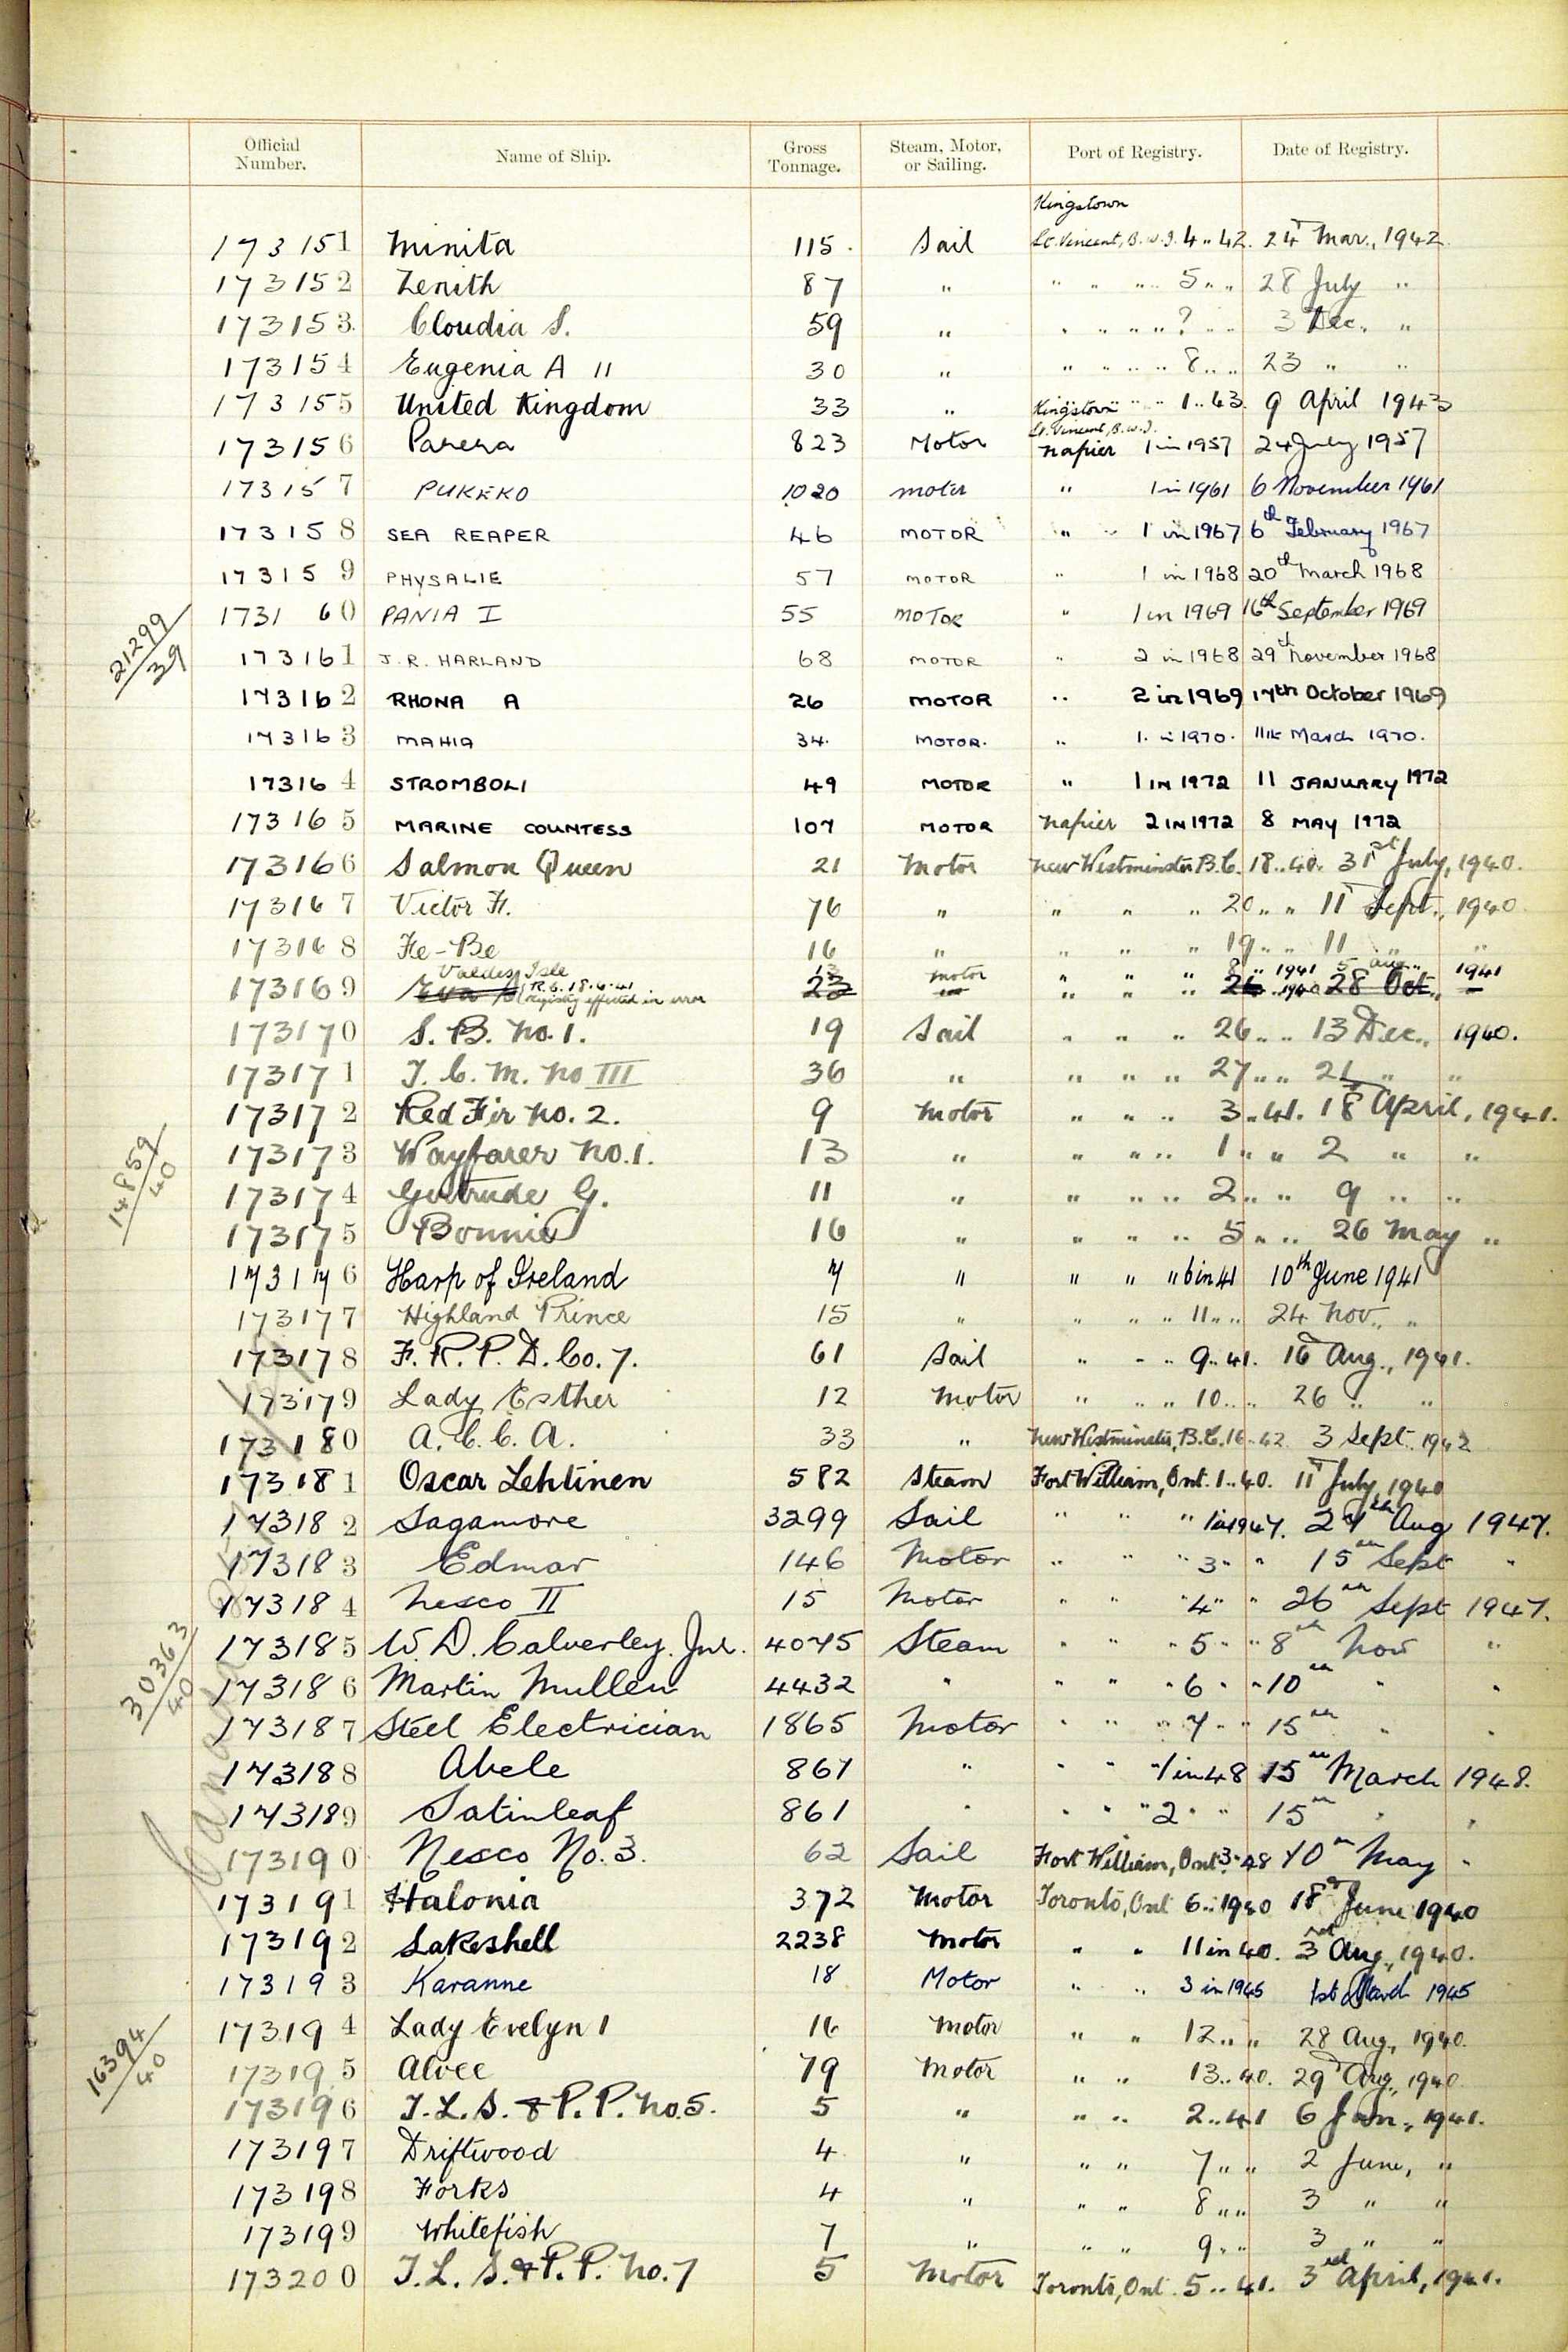 Official Number. Name of Ship. Gross Tonnage. Steam, Motor, or Sailing. Port of Registry. Date of Registry.
Kingstown
173151 Minita 115. Sail St. Vincent, B.W.I. 4..42. 24 Mar., 1942.
173152 Zenith 87 " " " " " 5 " " 28 July "
173153 Cloudia S. 59 " " " " " ? " " 3 Dec., "
173154 Eugenia A II 30 " " " " " 8 " " 23 " "
173155 United Kingdom 33 " Kingstown " " 1..43. 9 April 1943
St. Vincent, B.W.I.
173156 Parera 823 Motor Napier 1 in 1957 24 July 1957
173157 PUKEKO 1020 motor " 1 in 1961 6 November 1961
173158 SEA REAPER 46 MOTOR " 1 in 1967 6th February 1967
173159 PHYSALIE 57 MOTOR " 1 in 1968 20th March 1968
173160 PANIA I 55 MOTOR " 1 in 1969 16th September 1969
21299/39
173161 J.R. HARLAND 68 MOTOR " 2 in 1968 29th November 1968
173162 RHONA A 26 MOTOR " 2 in 1969 17th October 1969
173163 MAHIA 34. MOTOR. " 1. in 1970. 11th March 1970.
173164 STROMBOLI 49 MOTOR " 1 IN 1972 11 JANUARY 1972
173165 MARINE COUNTESS 107 MOTOR Napier 2 IN 1972 8 MAY 1972
173166 Salmon Queen 21 Motor New Westminster B.C. 18..40. 31st July, 1940.
173167 Victor H. 76 " " " " 20 " " 11 Sept., 1940.
173168 He-Be 16 " " " " 19 " " 11 " "
Valdes Isle 13 Motor 8 " 1941 5 Aug. 1941
173169 R.C. 18.6.41 23 " " " 26 " 1940 28 Oct.
Registry effected in error
173170 S. B. No. 1. 19 Sail " " " 26 " " 13 Dec., 1940.
173171 T. C. M. No III 36 " " " " 27 " " 21 " "
173172 Red Fir No. 2. 9 Motor " " " 3..41. 18 April, 1941.
173173 Wayfarer No. 1. 13 " " " " 1 " " 2 " "
14859/40
173174 Gertrude G. 11 " " " " 2 " " 9 " "
173175 Bonnie 16 " " " " 5 " " 26 May "
173176 Harp of Ireland 7 " " " " 6 in 41 10th June 1941
173177 Highland Prince 15 " " " " 11 " " 24 Nov., "
173178 F. R. P. D. Co. 7. 61 Sail " " " 9..41. 16 Aug., 1941.
173179 Lady Esther 12 Motor " " " 10 " " 26 " "
173180 A. C. C. A. 33 " New Westminster, B.C. 16..42 3 Sept. 1942
173181 Oscar Lehtinen 582 Steam Fort William, Ont. 1..40. 11 July, 1940
173182 Sagamore 3299 Sail " " " 1 in 1947. 27th Aug 1947.
173183 Edmar 146 Motor " " " 3 " " 15th Sept "
173184 Nesco II 15 Motor " " " 4 " " 26th Sept 1947.
173185 W. D. Calverley. Jnr. 4075 Steam " " " 5 " " 8th Nov "
30363/40
173186 Martin Mullen 4432 " " " " 6 " " 10th " "
173187 Steel Electrician 1865 Motor " " " 7 " " 15th " "
173188 Abele 867 " " " " 1 in 48 15th March 1948.
Canada
173189 Satinleaf 861 " " " " 2 " " 15th " "
173190 Nesco No. 3. 62 Sail Fort William, Ont 3 " 48 10th May "
173191 Halonia 372 Motor Toronto, Ont 6..1940 18th June 1940
173192 Lakeshell 2238 Motor " " 11 in 40. 3rd Aug., 1940.
173193 Karanne 18 Motor " " 3 in 1945 1st March 1945
173194 Lady Evelyn I 16 Motor " " 12 " " 28 Aug., 1940.
16394/40
173195 Alvee 79 Motor " " 13..40. 29 Aug., 1940.
173196 T. L. S. & P. P. No. 5. 5 " " " 2..41 6 Jan., 1941.
173197 Driftwood 4 " " " 7 " " 2 June, "
173198 Forks 4 " " " 8 " " 3 " "
173199 Whitefish 7 " " " 9 " " 3 " "
173200 T. L. S. & P. P. No. 7 5 Motor Toronto, Ont. 5..41. 3rd April, 1941.